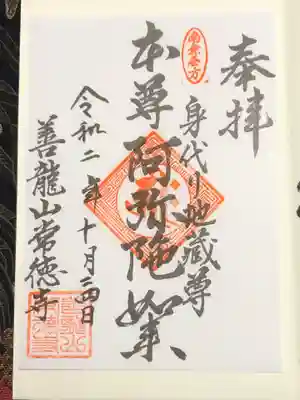 奉拝
身代り地蔵尊
本尊阿弥陀如来
令和二年十月二四日
善龍山常徳寺